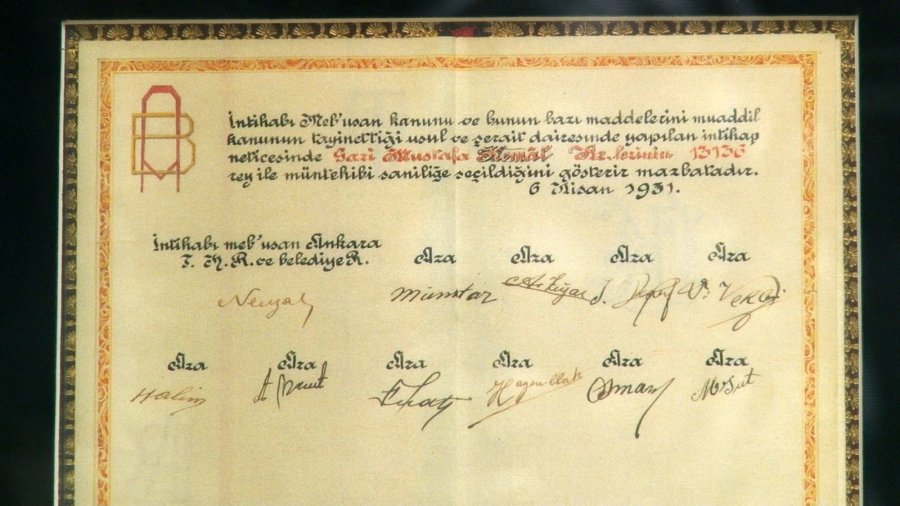 İntikabı Meb'usan kanunu ve bunun bazı maddelerini muaddil
kanunun tayinettiği usul ve şerait dairesinde yapılan intikap
neticesinde Gazi Mustafa Kemâl Hz.lerinin 13136
rey ile müntekibi saniliğe seçildiğini gösterir mazbatadır.
6 Nisan 1931.
İntikabı meb'usan Ankara
T. H. R. ve belediye R.
Aza Aza Aza Aza
Nevzat Mümtaz
Aza Aza Aza Aza Aza Aza
Halim Hayrullah Osman